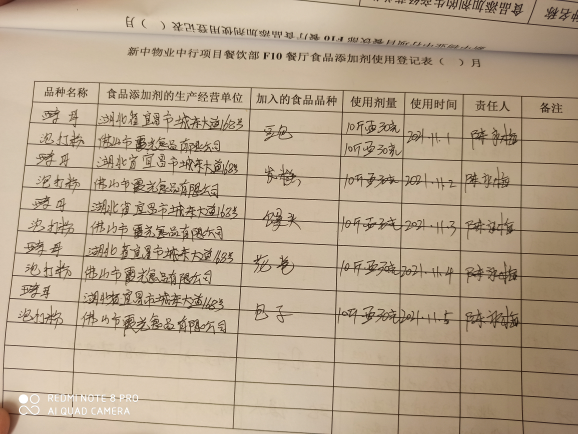 新中物业中行项目餐饮部 F10 餐厅食品添加剂使用登记表（ ）月
品种名称 食品添加剂的生产经营单位 加入的食品品种 使用剂量 使用时间 责任人 备注
酵母 湖北省宜昌市城东大道168号 豆包 10斤面30克 2021.11.1
泡打粉 佛山市 食品有限公司 10斤面30克
酵母 湖北省宜昌市城东大道168号 10斤面30克 2021.11.2
泡打粉 佛山市 食品有限公司
酵母 湖北省宜昌市城东大道168号 馒头 10斤面30克 2021.11.3
泡打粉 佛山市 食品有限公司
酵母 湖北省宜昌市城东大道168号 花卷 10斤面30克 2021.11.4
泡打粉 佛山市 食品有限公司
酵母 湖北省宜昌市城东大道168号 包子 10斤面30克 2021.11.5
泡打粉 佛山市 食品有限公司
REDMI NOTE 8 PRO
AI QUAD CAMERA